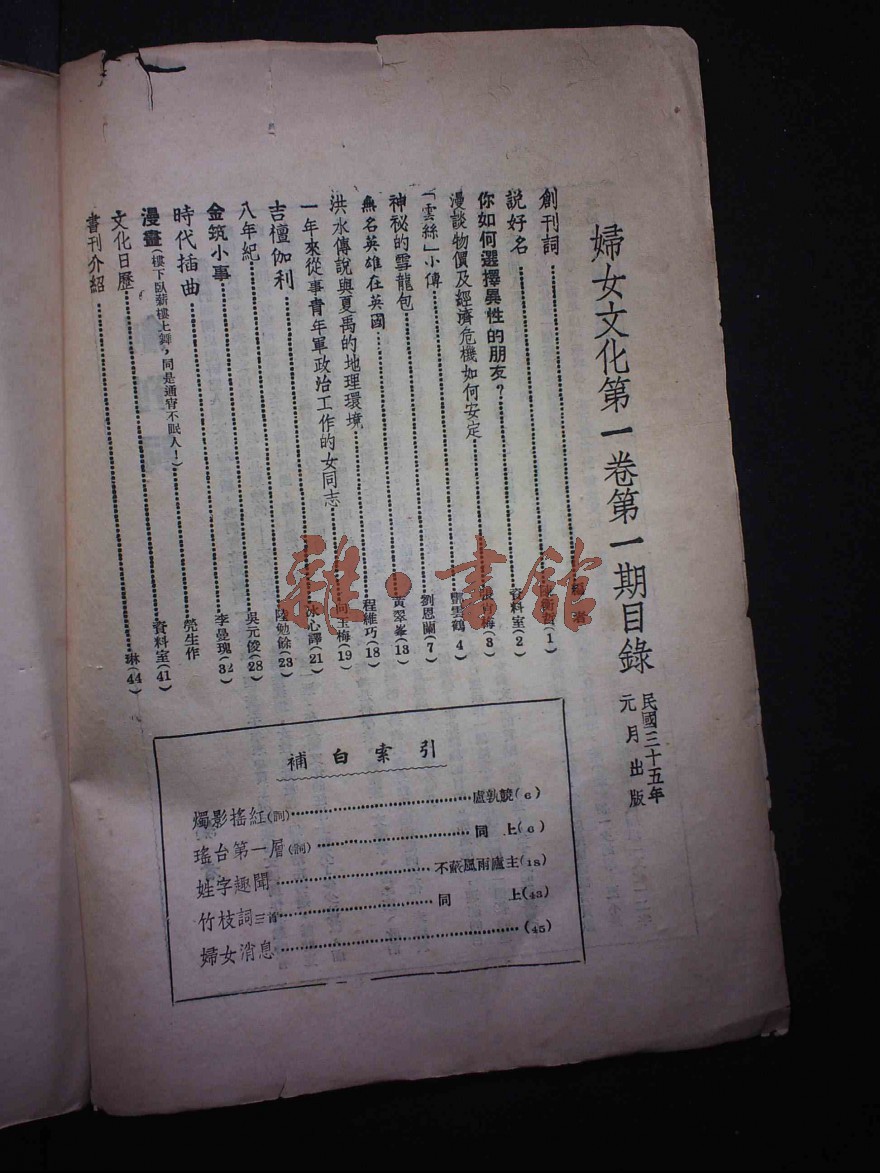 婦女文化第一卷第一期目錄
民國三十五年
元月出版
創刊詞 編者
說好名 (1)
你如何選擇異性的朋友? 資料室(2)
漫談物價及經濟危機如何安定 梅(3)
「雲絲」小傳 雲鶴(4
神祕的雪龍包 劉恩蘭(7)
無名英雄在英國 黃翠峯(13)
洪水傳說與夏禹的地理環境 程維巧(18)
一年來從事青年軍政治工作的女同志 向玉梅(19)
吉檀伽利 冰心譯(21)
八年紀 陸勉餘(23)
金筑小事 吳元俊(28)
時代插曲 李曼瑰(32)
漫畫(樓下臥薪樓上舞,同是通宵不眠人!) 生作
文化日歷 資料室(41)
書刊介紹 琳(44)
補白索引
燭影搖紅(詞) 盧孰競(6)
瑤台第一層(詞) 同上(6)
姓字趣聞 不蔽風雨廬主(18)
竹枝詞三首 同上(43)
婦女消息 (45)
雜·書館